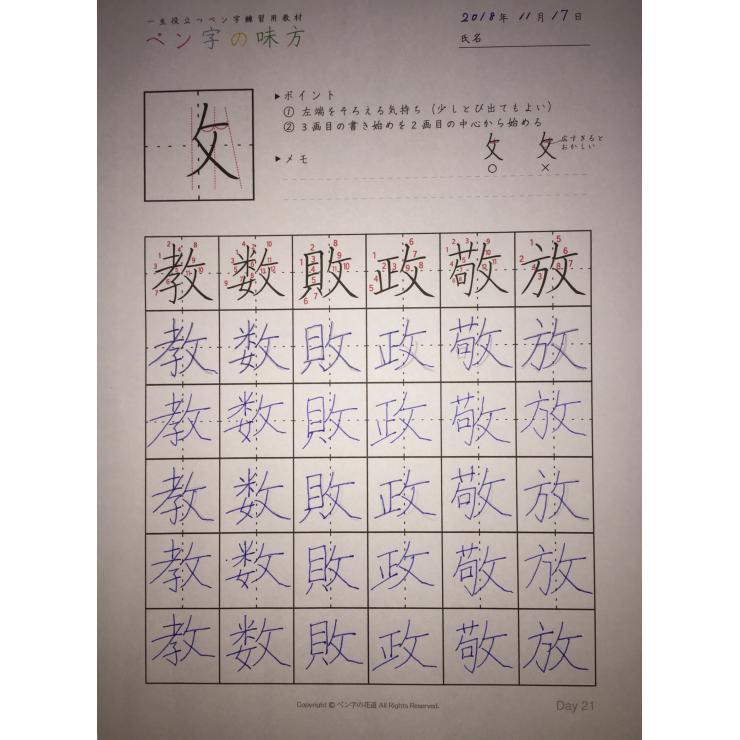 一生役立つペン字練習用教材
ペン字の味方
2018年 11月 17日
氏名
攵
▶ポイント
① 左端をそろえる気持ち（少しとび出てもよい）
② 3画目の書き始めを2画目の中心から始める
▶メモ
攵 攵 広すぎると
おかしい
○ ×
教 数 敗 政 敬 放
教 数 敗 政 敬 放
教 数 敗 政 敬 放
教 数 敗 政 敬 放
教 数 敗 政 敬 放
教 数 敗 政 敬 放
Copyright © ペン字の花道 All Rights Reserved.
Day 21